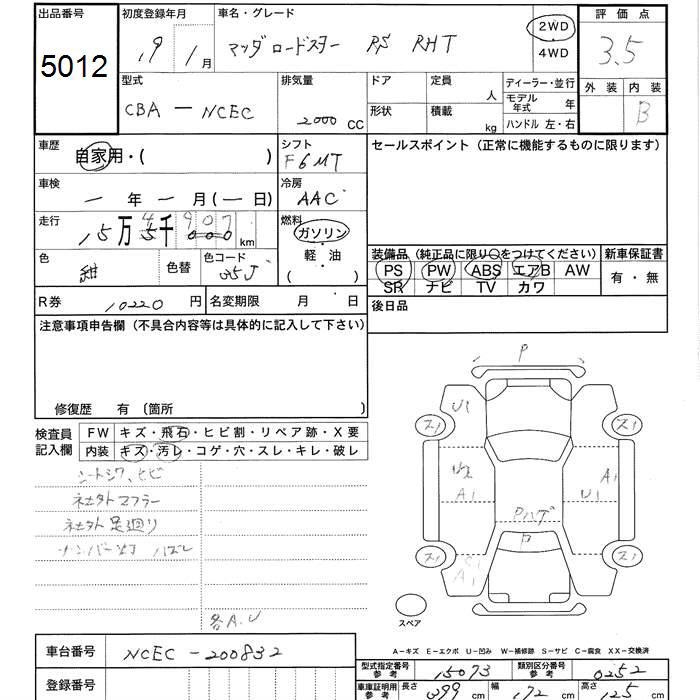 出品番号 初度登録年月 車名・グレード 2WD 評価点
5012 19 1月 マツダ ロードスター RS RHT 4WD 3.5
外装 内装
型式 排気量 ドア 定員 ディーラー・並行
CBA - NCEC 2000 CC 人 モデル年式 年 B
形状 積載 kg ハンドル 左・右
車歴 自家用・( ) シフト セールスポイント(正常に機能するものに限ります)
F6MT
車検 - 年 - 月(- 日) 冷房
AAC
走行 15万 4千 907 km 燃料
5 000 ガソリン
色 紺 色替 色コード 35J 軽油
( ) 装備品(純正品に限り○をつけてください) 新車保証書
PS PW ABS エアB AW 有・無
SR ナビ TV カワ
R券 10220 円 名変期限 月 日 後日品
注意事項申告欄(不具合内容等は具体的に記入して下さい)
修復歴 有(箇所 )
検査員 FW キズ・飛石・ヒビ割・リペア跡・X要
記入欄 内装 キズ・汚レ・コゲ・穴・スレ・キレ・破レ
シートシワ、ヒビ
社外マフラー
社外足廻り
ナンバー灯ハズレ
各A.U
P
U1
スリ スリ
A1 A1
U1
Pハゲ
P
A1
スリ スリ
スペア
A-キズ E-エクボ U-凹み W-補修跡 S-サビ C-腐食 XX-交換済
車台番号 NCEC - 200832
型式指定番号 参考 15073 類別区分番号 参考 0252
登録番号 車庫証明用 参考 長さ 399 cm 幅 172 cm 高さ 125 cm